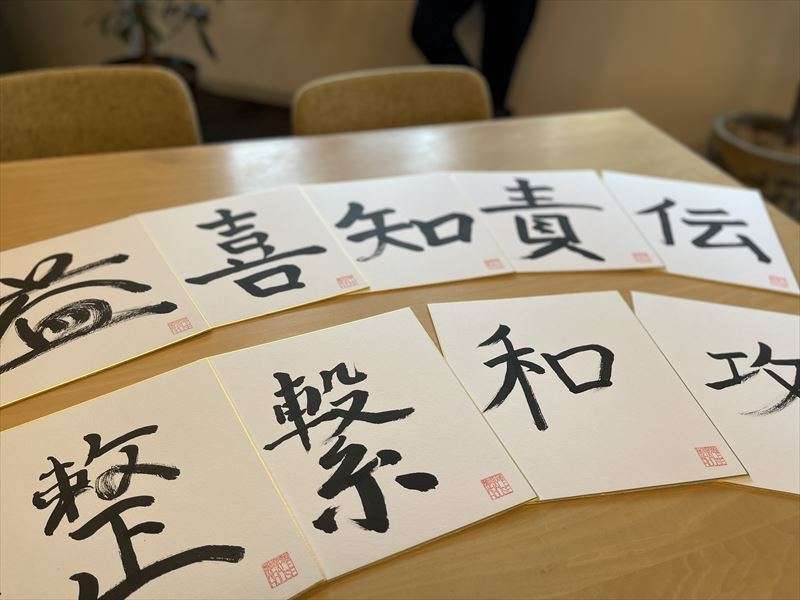 喜 知 責 伝
整 繋 和 攻